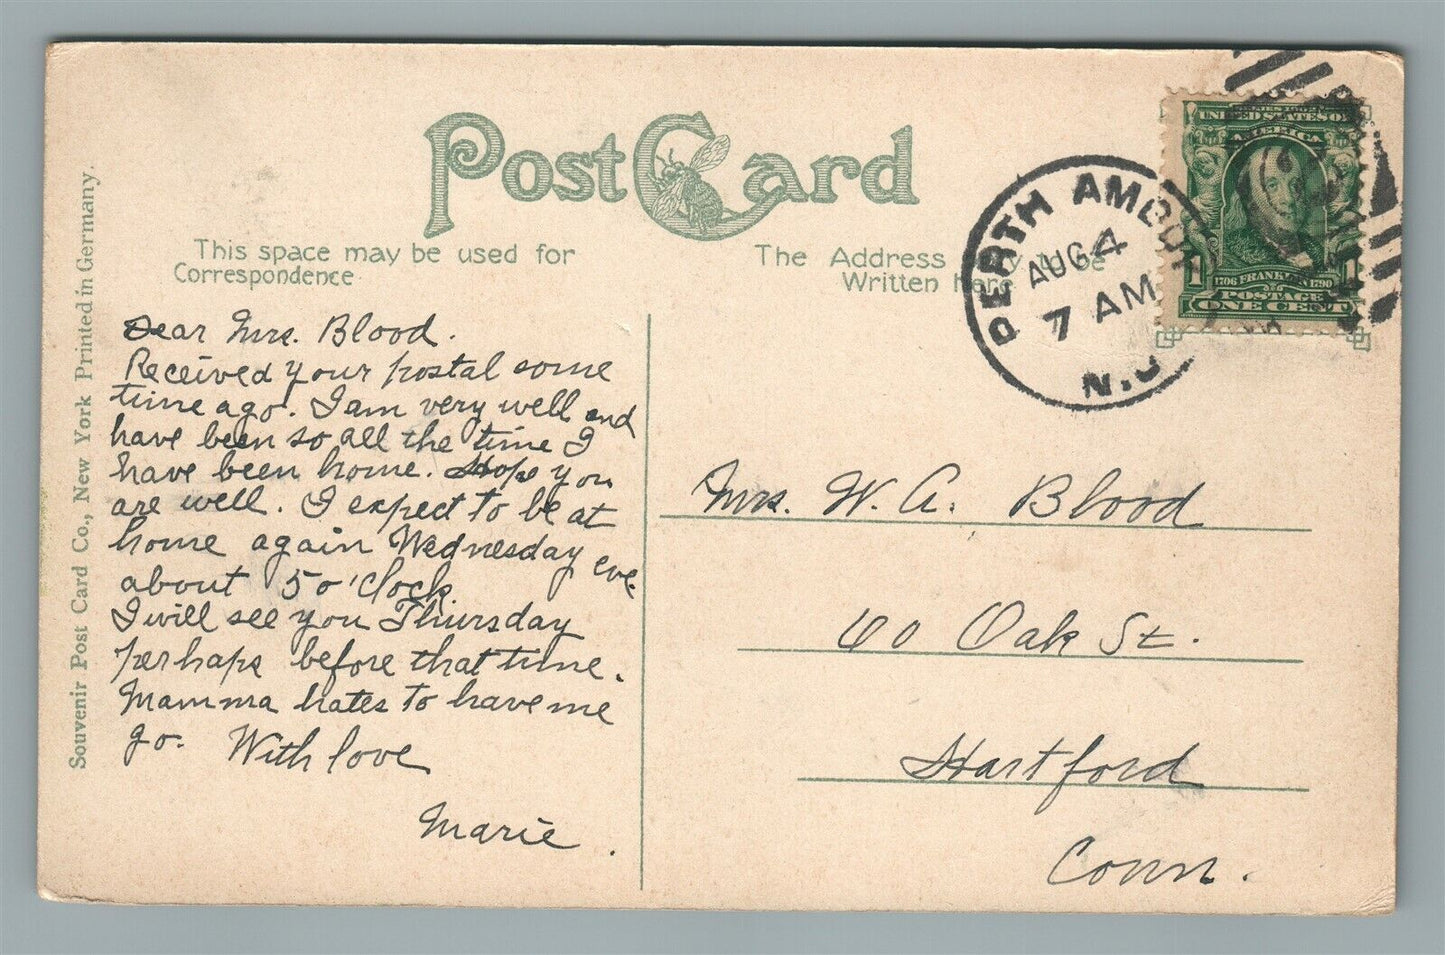 Post Card
This space may be used for
Correspondence
The Address may be
Written here
PERTH AMBOY
AUG 4
7 AM
N.J.
SERIES 1902
UNITED STATES OF
AMERICA
1 1
1706 FRANKLIN 1790
POSTAGE
ONE CENT
Souvenir Post Card Co., New York Printed in Germany.
Dear Mrs. Blood.
Received your postal some
time ago. I am very well and
have been so all the time I
have been home. Hope you
are well. I expect to be at
home again Wednesday eve.
about 5 o'clock.
I will see you Thursday
perhaps before that time.
Mamma hates to have me
go. With love
Marie.
Mrs. W. A. Blood
60 Oak St.
Hartford
Conn.